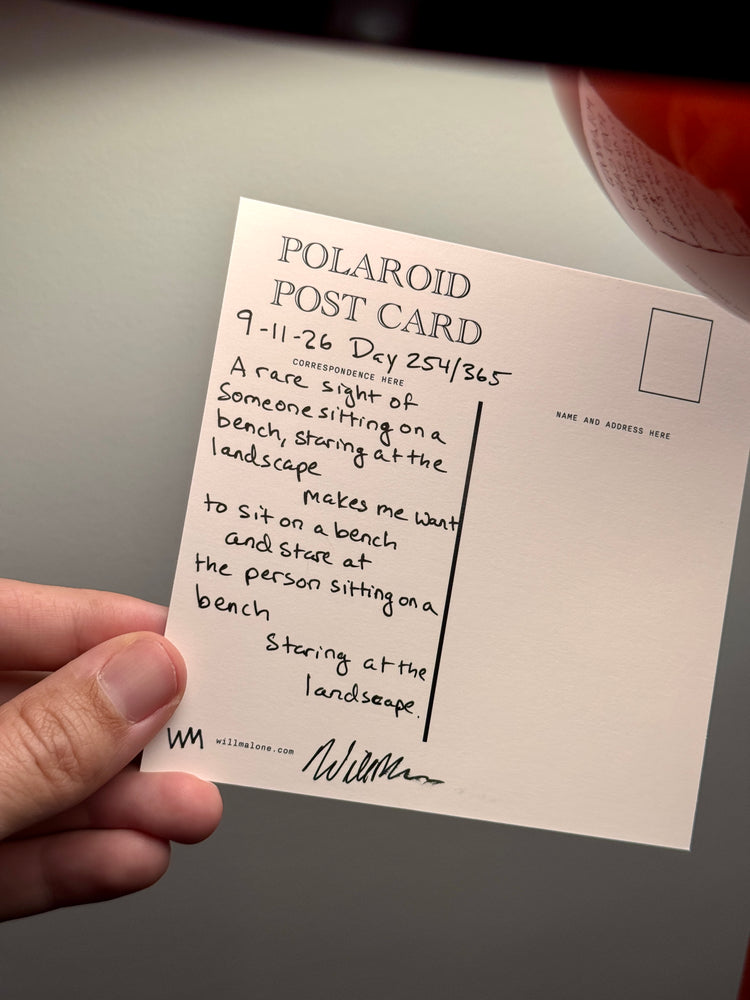 POLAROID
POST CARD
9-11-26 Day 254/365
CORRESPONDENCE HERE
A rare sight of
someone sitting on a
bench, staring at the
landscape
makes me want
to sit on a bench
and stare at
the person sitting on a
bench
Staring at the
landscape.
WM willmalone.com
NAME AND ADDRESS HERE